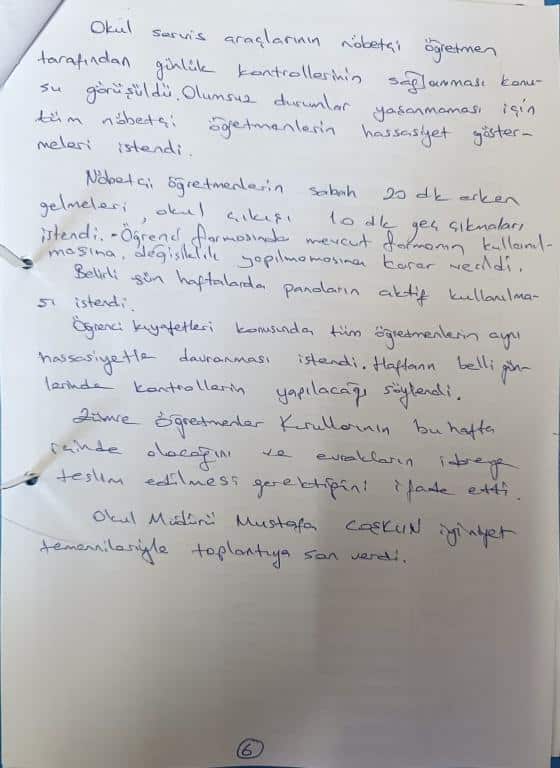 Okul servis araçlarının nöbetçi öğretmen
tarafından günlük kontrollerinin sağlanması konu-
su görüşüldü. Olumsuz durumlar yaşanmaması için
tüm nöbetçi öğretmenlerin hassasiyet göster-
meleri istendi.
Nöbetçi öğretmenlerin sabah 20 dk erken
gelmeleri, okul çıkışı 10 dk geç çıkmaları
istendi. Öğrenci formasında mevcut formanın kullanıl-
masına, değişiklik yapılmamasına karar verildi.
Belirli gün haftalarda panoların aktif kullanılma-
sı istendi.
Öğrenci kıyafetleri konusunda tüm öğretmenlerin aynı
hassasiyetle davranması istendi. Haftanın belli gün-
lerinde kontrollerin yapılacağı söylendi.
Zümre öğretmenler Kurullarının bu hafta
içinde olacağını ve evrakların idareye
teslim edilmesi gerektiğini ifade etti.
Okul Müdürü Mustafa COŞKUN iyi niyet
temennileriyle toplantıya son verdi.
6